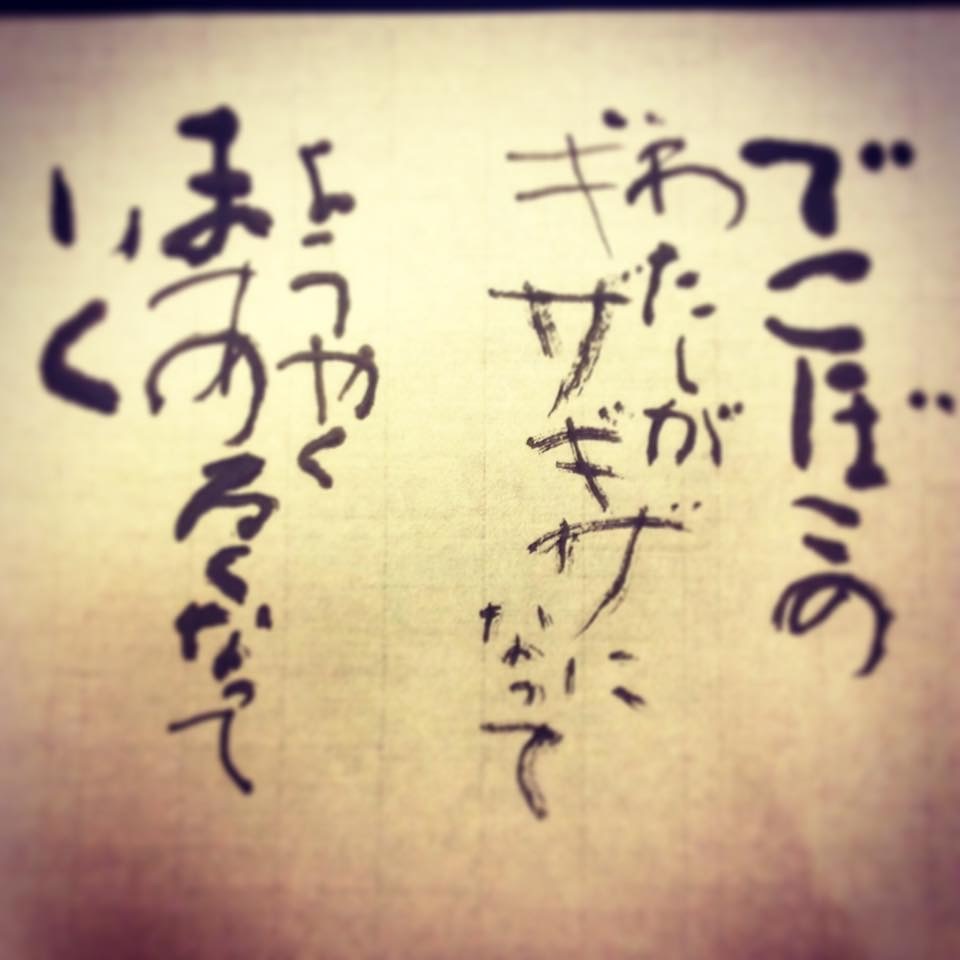 でこぼこの
わたしが
ギザギザに
なって
ようやく
まあるくなって
いく